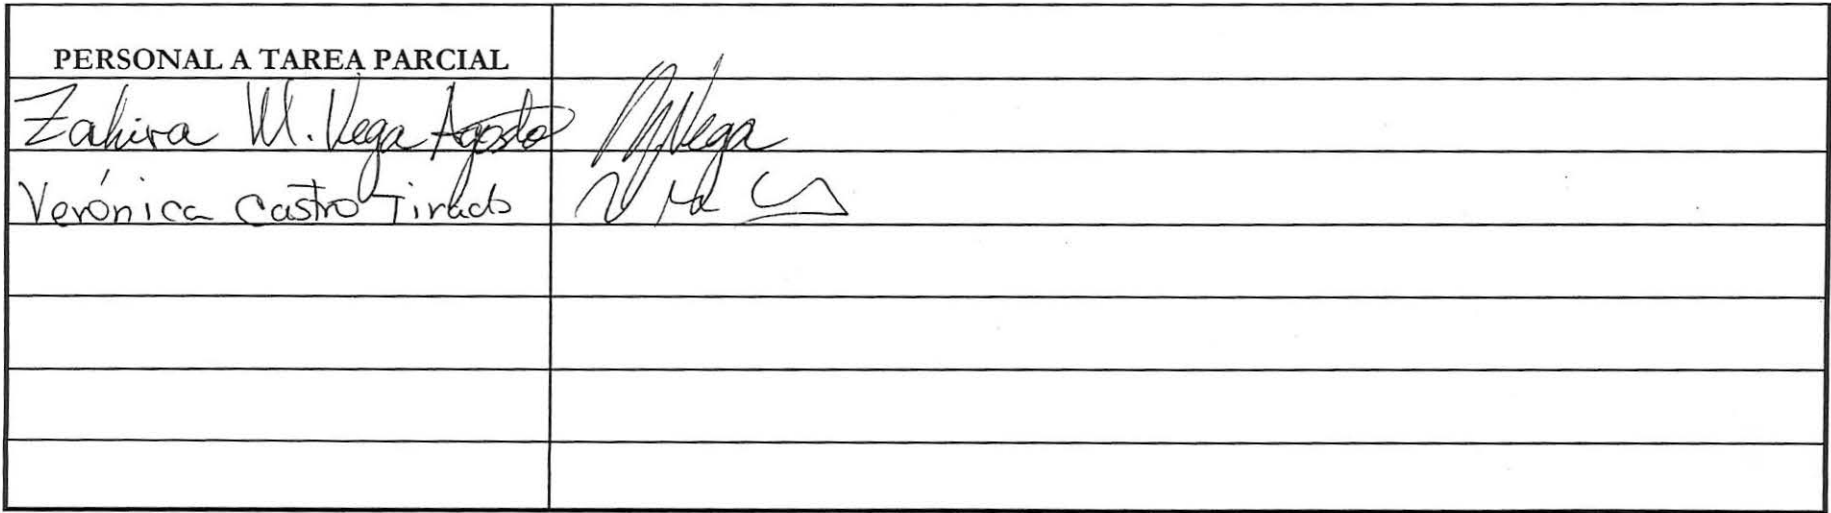 PERSONAL A TAREA PARCIAL
Zahira M. Vega Agosto Vega
Verónica Castro Tirado